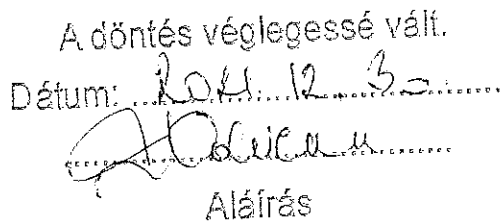 A döntés véglegessé vált.
Dátum: 2021. 12. 30.
Aláírás